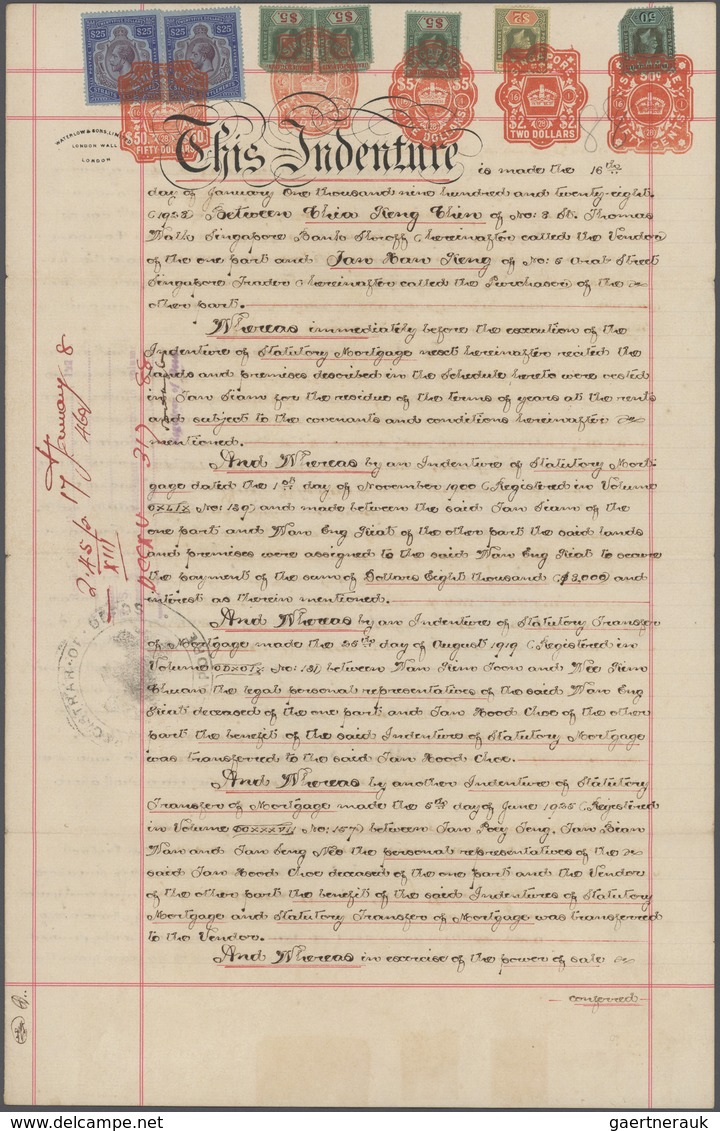 $25 $25 $5 $5 $5 $2 50
$50 FIFTY DOLLARS
$5 FIVE DOLLARS $5
SINGAPORE $2 TWO DOLLARS $2
50c FIFTY CENTS
WATERLOW & SONS, LIM
LONDON WALL
LONDON
This Indenture is made the 16th
day of January One thousand nine hundred and twenty-eight
(1928) Between Chia Keng Chin of No: 3 St. Thomas
Walk Singapore Bank Shroff (hereinafter called the Vendor)
of the one part and Tan Han Keng of No: 5 Street
Singapore Trader (hereinafter called the Purchaser) of the
other part.
Whereas immediately before the execution of the
Indenture of Statutory Mortgage next hereinafter recited the
lands and premises described in the Schedule hereto were vested
in Tan Siam for the residue of the terms of years at the rents
and subject to the covenants and conditions hereinafter
mentioned.
And Whereas by an Indenture of Statutory Mort-
gage dated the 1st day of November 1900 (Registered in Volume
No: 139) and made between the said Tan Siam of the
one part and Wan Eng Kiat of the other part the said lands
and premises were assigned to the said Wan Eng Kiat to secure
the payment of the sum of Dollars Eight thousand ($8,000) and
interest as therein mentioned.
And Whereas by an Indenture of Statutory Transfer
of Mortgage made the 25th day of August 1919 (Registered in
Volume No: 131) between Wan Kim and Wee Kim
Chuan the legal personal representatives of the said Wan Eng
Kiat deceased of the one part and Tan Hood Choe of the other
part the benefit of the said Indenture of Statutory Mortgage
was transferred to the said Tan Hood Choe.
And Whereas by another Indenture of Statutory
Transfer of Mortgage made the 5th day of June 1925 (Registered
in Volume No: 157) between Tan Poey Teng, Tan Bian
Wan and Tan Seng Neo the personal representatives of the
said Tan Hood Choe deceased of the one part and the Vendor
of the other part the benefit of the said Indentures of Statutory
Mortgage and Statutory Transfer of Mortgage was transferred
to the Vendor.
And Whereas in exercise of the power of sale
conferred
2.45 p 17 January 8
XIII
gaertnerauk
gaertnerauk